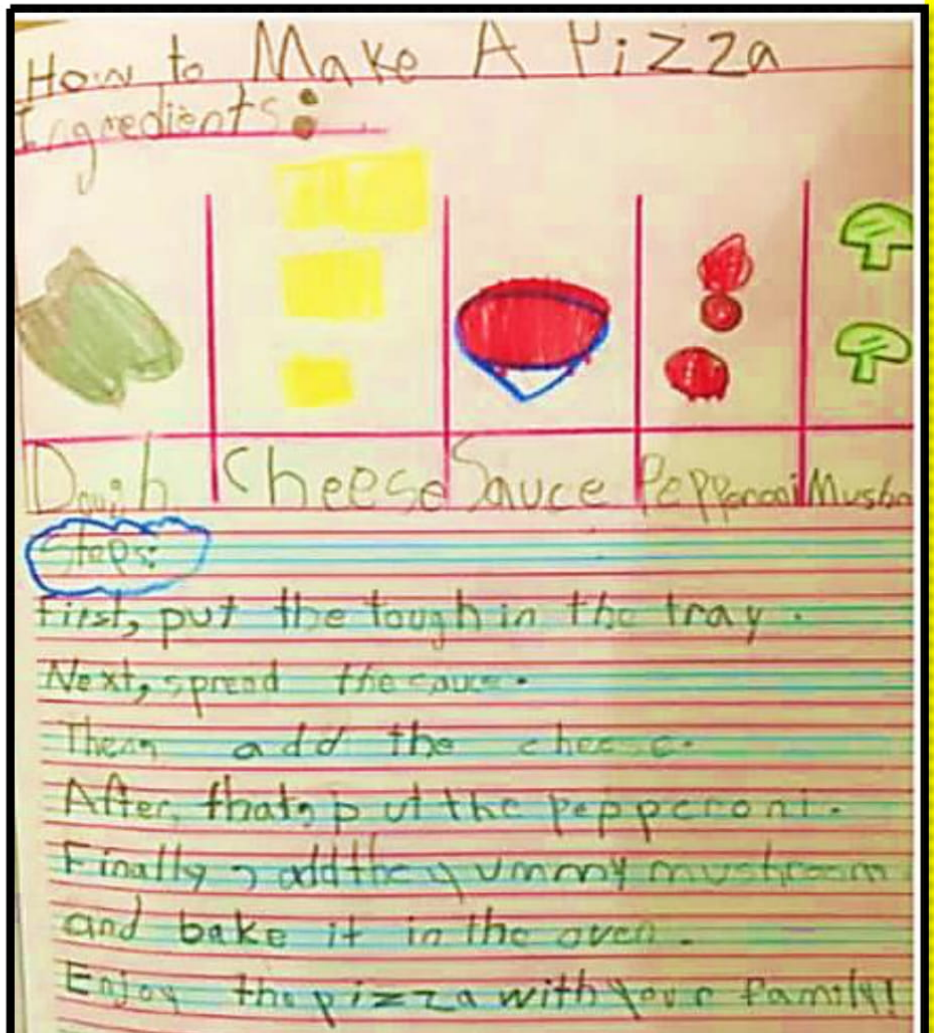 How to Make A Pizza
Ingredients:
Dough Cheese Sauce Pepperoni Mushr
Steps:
First, put the tough in the tray.
Next, spread the sauce.
Then, add the cheese.
After, that, put the pepperoni.
Finally, add the yummy mushroom
and bake it in the oven.
Enjoy the pizza with your family!